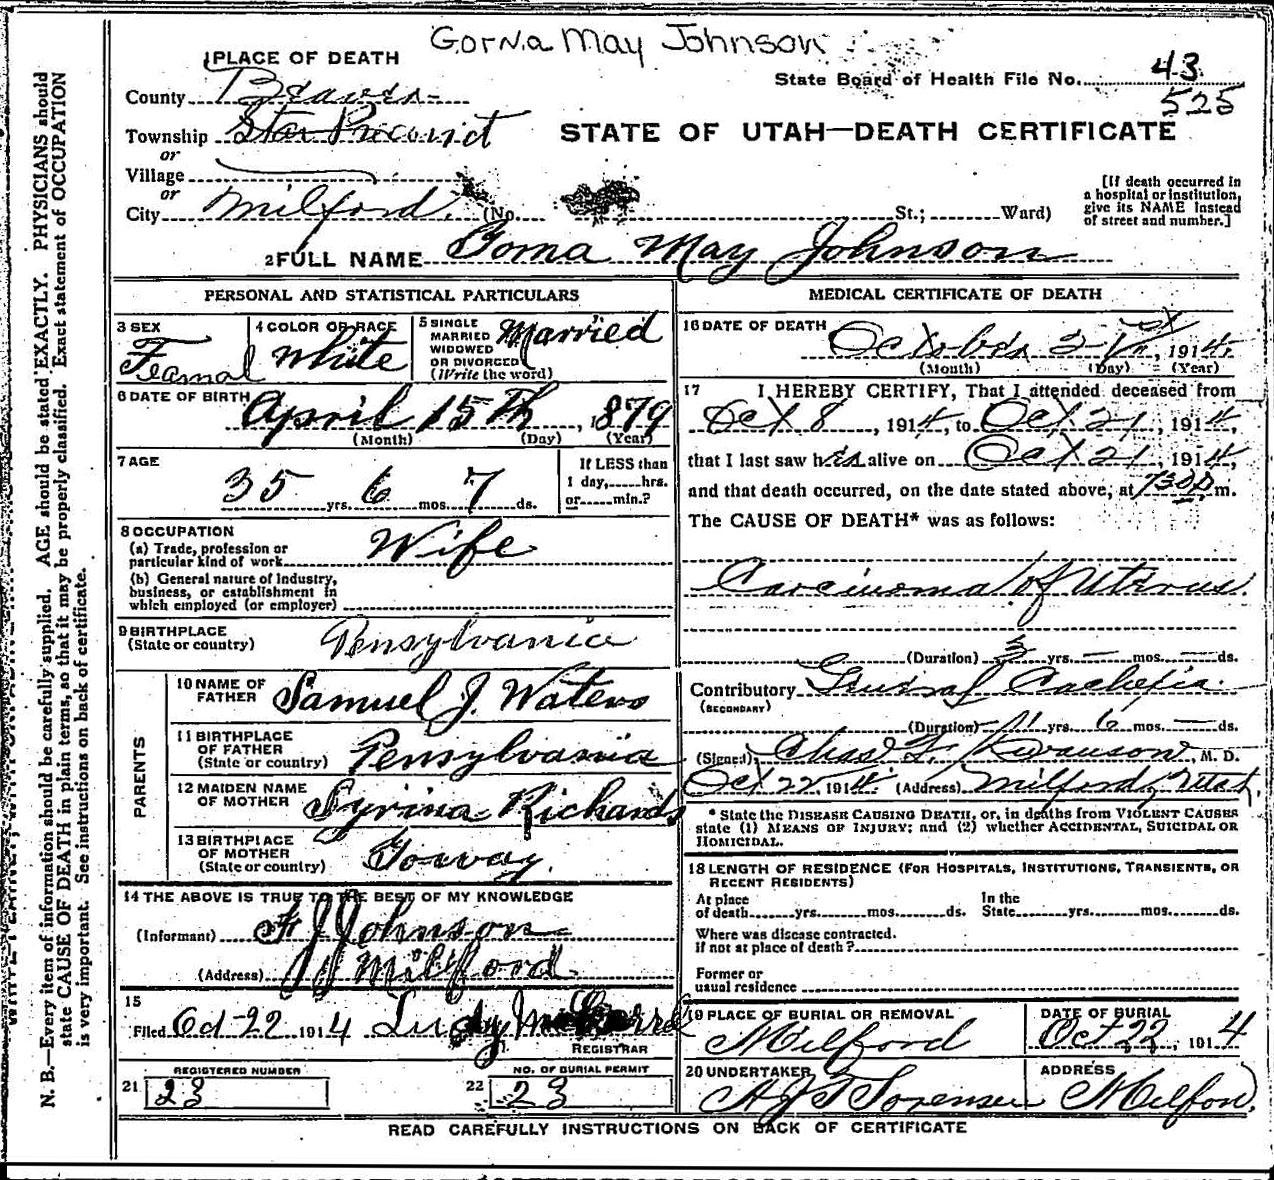 Gorna May Johnson
1 PLACE OF DEATH
State Board of Health File No. 43
525
County Beaver
Township Star Precinct
STATE OF UTAH—DEATH CERTIFICATE
or
Village
or
City Milford (No. St.; Ward)
[If death occurred in a hospital or institution, give its NAME instead of street and number.]
2 FULL NAME Gorna May Johnson
PERSONAL AND STATISTICAL PARTICULARS
3 SEX Feamal
4 COLOR OR RACE White
5 SINGLE MARRIED WIDOWED OR DIVORCED (Write the word) Married
6 DATE OF BIRTH April 15th, 1879
(Month) (Day) (Year)
7 AGE 35 yrs. 6 mos. 7 ds.
If LESS than 1 day, hrs. or min.?
8 OCCUPATION
(a) Trade, profession or particular kind of work Wife
(b) General nature of industry, business, or establishment in which employed (or employer)
9 BIRTHPLACE (State or country) Pensylvania
PARENTS
10 NAME OF FATHER Samuel J. Waters
11 BIRTHPLACE OF FATHER (State or country) Pensylvania
12 MAIDEN NAME OF MOTHER Syrina Richards
13 BIRTHPLACE OF MOTHER (State or country)
14 THE ABOVE IS TRUE TO THE BEST OF MY KNOWLEDGE
(Informant) Johnson
(Address) Milford
15
Filed Oct 22 1914
REGISTRAR
REGISTERED NUMBER
21 23
NO. OF BURIAL PERMIT
22 23
MEDICAL CERTIFICATE OF DEATH
16 DATE OF DEATH October 21st, 1914
(Month) (Day) (Year)
17 I HEREBY CERTIFY, That I attended deceased from
Oct 8, 1914, to Oct 21, 1914,
that I last saw her alive on Oct 21, 1914,
and that death occurred, on the date stated above, at 730 p m.
The CAUSE OF DEATH* was as follows:
Carcinoma of Uterus
(Duration) 3 yrs. — mos. — ds.
Contributory (SECONDARY) General Cachexia.
(Duration) yrs. 6 mos. — ds.
(Signed) Chas. M. D.
Oct 22 1914. (Address) Milford, Utah.
* State the DISEASE CAUSING DEATH, or, in deaths from VIOLENT CAUSES state (1) MEANS OF INJURY; and (2) whether ACCIDENTAL, SUICIDAL OR HOMICIDAL.
18 LENGTH OF RESIDENCE (FOR HOSPITALS, INSTITUTIONS, TRANSIENTS, OR RECENT RESIDENTS)
At place of death yrs. mos. ds. In the State yrs. mos. ds.
Where was disease contracted. If not at place of death?
Former or usual residence
19 PLACE OF BURIAL OR REMOVAL Milford
DATE OF BURIAL Oct 22, 1914
20 UNDERTAKER Sorensen
ADDRESS Milford,
READ CAREFULLY INSTRUCTIONS ON BACK OF CERTIFICATE
N. B.—Every item of information should be carefully supplied. AGE should be stated EXACTLY. PHYSICIANS should
state CAUSE OF DEATH in plain terms, so that it may be properly classified. Exact statement of OCCUPATION
is very important. See instructions on back of certificate.